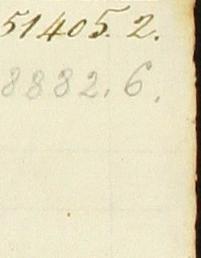 51405. 2.
8882. 6.